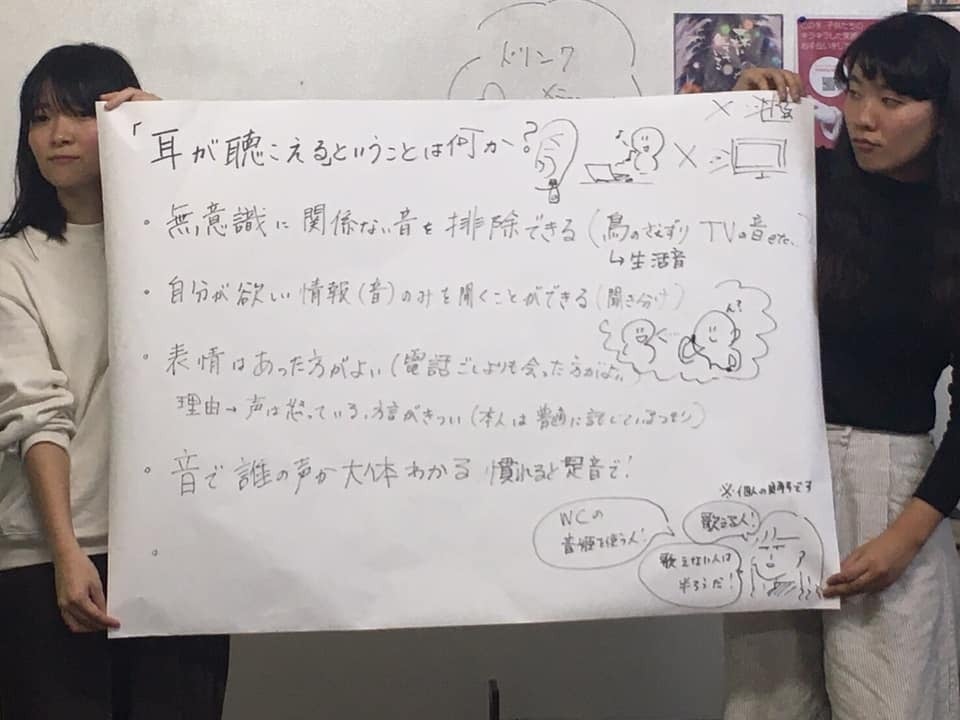 ドリンク
この冬、子供たちの
キラキラした笑顔
お手伝いをして
「耳が聴こえるということは何か?
・無意識に関係ない音を排除できる(鳥のさえずり TVの音etc.)
↳生活音
・自分が欲しい情報(音)のみを聞くことができる(聞き分け)
ん?
・表情はあった方がよい(電話ごしよりも会った方がよい)
理由→声は怒っている、方言がきつい(本人は普通に話しているつもり)
・音で誰の声か大体わかる 慣れると足音で!
※個人の です
WCの
音姫を使う人!
歌える人!
歌えない人は
半ろうだ!
・